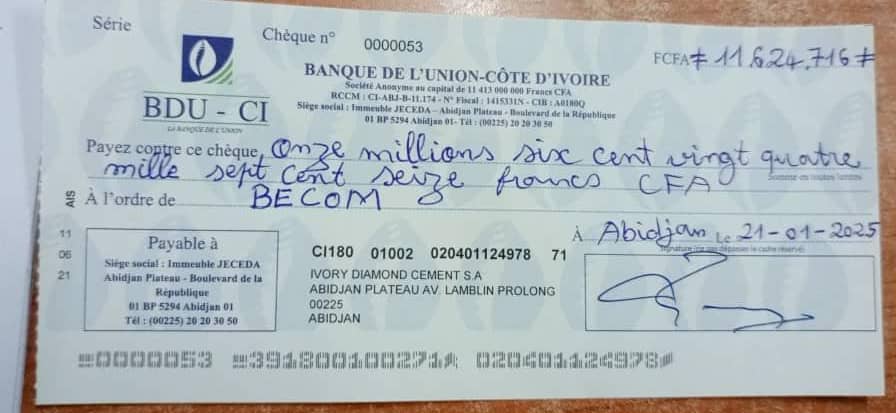 Série
Chèque n° 0000053
FCFA # 11.624.716 #
BANQUE DE L'UNION-CÔTE D'IVOIRE
Société Anonyme au capital de 11 413 000 000 Francs CFA
RCCM : CI-ABJ-B-11.174 - N° Fiscal : 1415331N - CIB : A0180Q
Siège social : Immeuble JECEDA – Abidjan Plateau - Boulevard de la République
01 BP 5294 Abidjan 01- Tél : (00225) 20 20 30 50
BDU - CI
LA BANQUE DE L'UNION
Payez contre ce chèque, Onze millions six cent vingt quatre
mille sept cent seize francs CFA
À l'ordre de BECOM
AIS
11
06
21
À Abidjan Le 21-01-2025
Signature (ne pas dépasser le cadre réservé)
Payable à
Siège social : Immeuble JECEDA
Abidjan Plateau - Boulevard de la
République
01 BP 5294 Abidjan 01
Tél : (00225) 20 20 30 50
CI180 01002 020401124978 71
IVORY DIAMOND CEMENT S.A
ABIDJAN PLATEAU AV. LAMBLIN PROLONG
00225
ABIDJAN
0000053 391800100271 020401124978